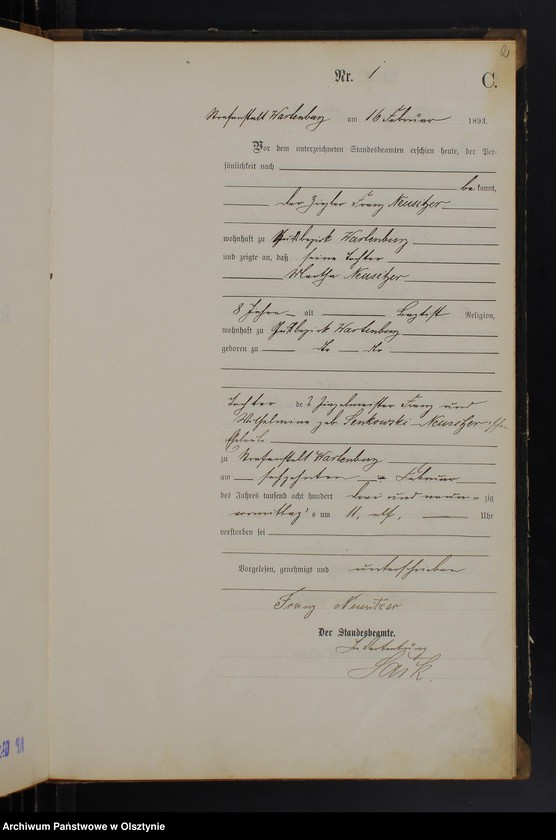 Nr. 1
C.
Strafanstalt Wartenburg am 16 Februar 1893.
Vor dem unterzeichneten Standesbeamten erschien heute, der Per-
sönlichkeit nach
bekannt,
der Ziegler Franz Neusitzer
wohnhaft zu Gutsbezirk Wartenburg
und zeigte an, daß seine Tochter
Martha Neusitzer
8 Jahre alt Baptist Religion,
wohnhaft zu Gutsbezirk Wartenburg
geboren zu
Tochter des Ziegelmeister Franz und
Wilhelmine geb. Senkowski Neusitzer
Eheleute
zu Strafanstalt Wartenburg
am sechzehnten Februar
des Jahres tausend acht hundert drei und neun-zig
vormittags um 11, elf, Uhr
verstorben sei
Vorgelesen, genehmigt und unterschrieben
Franz Neusitzer
Der Standesbeamte.
In Vertretung
Archiwum Państwowe w Olsztynie